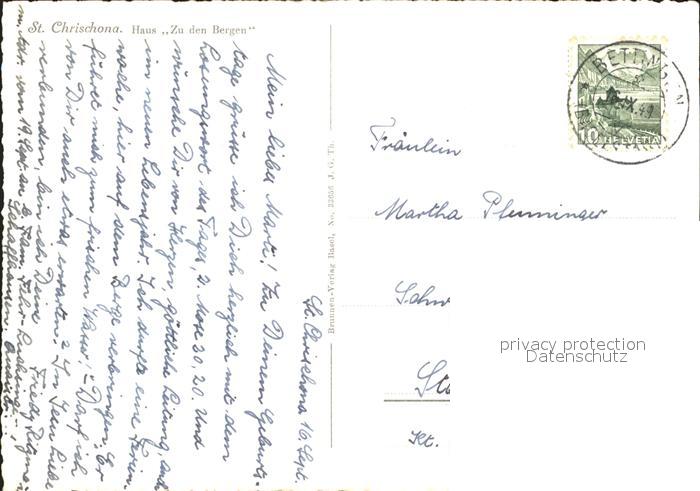 St. Chrischona. Haus „Zu den Bergen"
St. Chrischona 16. Sept.
Mein liebes Marti! Zu Deinem Geburts-
tage grüsse ich Dich herzlich mit dem
Losungswort des Tages, 2. Mose 30, 20. Und
wünsche Dir von Herzen, göttliche Leitung, auch
im neuen Lebensjahr. Ich durfte eine Ferien-
woche, hier auf dem Berge verbringen. Er
führet mich zum frischen Wasser, – Darf ich
von Dir auch etwas erwarten? In Jesu Liebe
verbunden, bin ich Deine Friedy
vom 19. Sept. an
Brunnen-Verlag Basel, No. 33656 J. G. Th.
BETTINGEN
IX. 49
10 HELVETIA
Fräulein
Martha Pfenninger
Schw
Sta
Kt.
privacy protection
Datenschutz